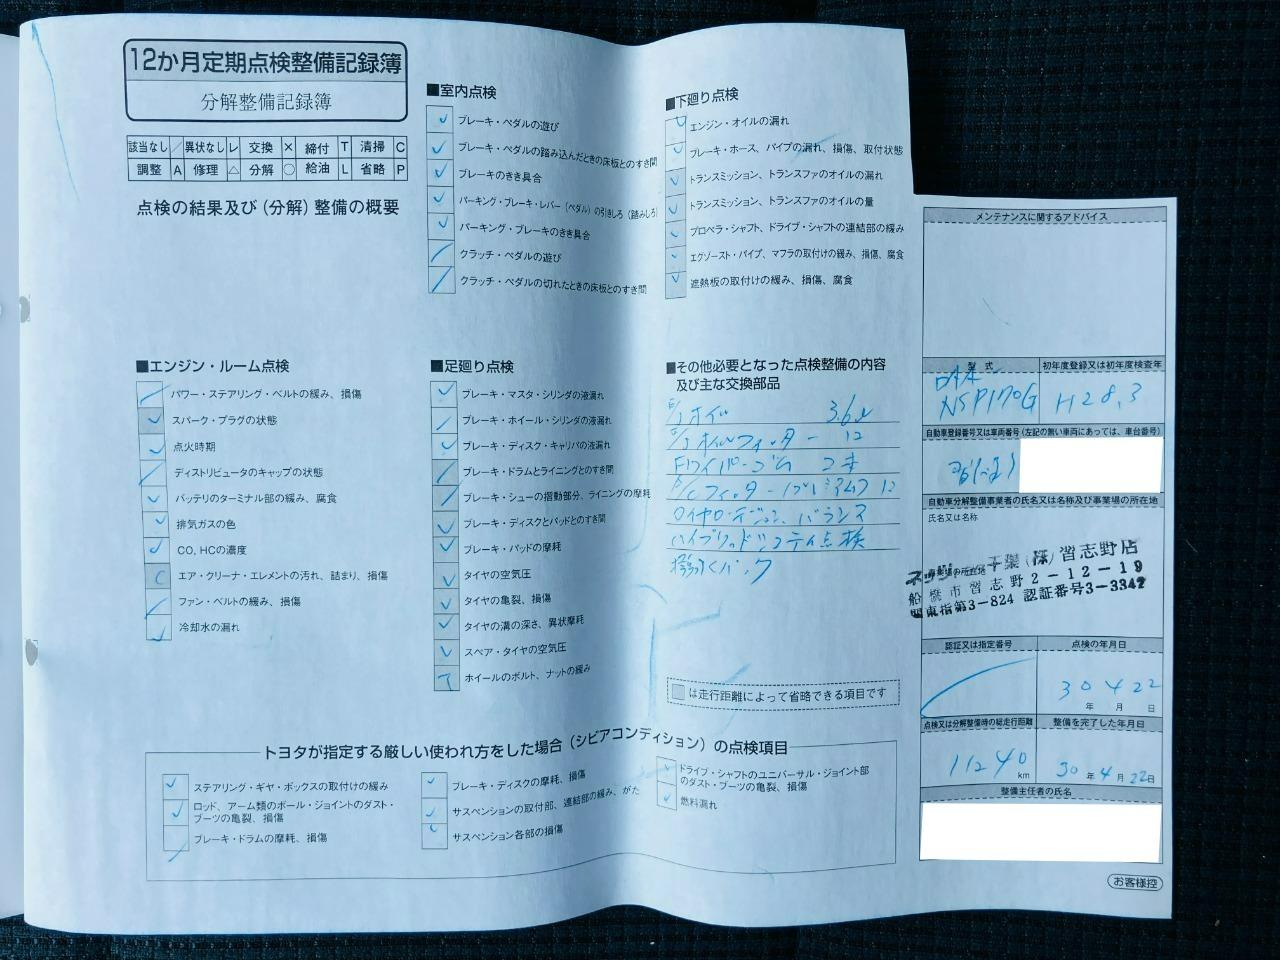 12か月定期点検整備記録簿
分解整備記録簿
該当なし ／ 異状なし レ 交換 × 締付 T 清掃 C
調整 A 修理 △ 分解 ○ 給油 L 省略 P
点検の結果及び（分解）整備の概要
■室内点検
ブレーキ・ペダルの遊び
ブレーキ・ペダルの踏み込んだときの床板とのすき間
ブレーキのきき具合
パーキング・ブレーキ・レバー（ペダル）の引きしろ（踏みしろ）
パーキング・ブレーキのきき具合
クラッチ・ペダルの遊び
クラッチ・ペダルの切れたときの床板とのすき間
■下廻り点検
エンジン・オイルの漏れ
ブレーキ・ホース、パイプの漏れ、損傷、取付状態
トランスミッション、トランスファのオイルの漏れ
トランスミッション、トランスファのオイルの量
プロペラ・シャフト、ドライブ・シャフトの連結部の緩み
エグゾースト・パイプ、マフラの取付けの緩み、損傷、腐食
遮熱板の取付けの緩み、損傷、腐食
■エンジン・ルーム点検
パワー・ステアリング・ベルトの緩み、損傷
スパーク・プラグの状態
点火時期
ディストリビュータのキャップの状態
バッテリのターミナル部の緩み、腐食
排気ガスの色
CO, HCの濃度
C エア・クリーナ・エレメントの汚れ、詰まり、損傷
ファン・ベルトの緩み、損傷
冷却水の漏れ
■足廻り点検
ブレーキ・マスタ・シリンダの液漏れ
ブレーキ・ホイール・シリンダの液漏れ
ブレーキ・ディスク・キャリパの液漏れ
ブレーキ・ドラムとライニングとのすき間
ブレーキ・シューの摺動部分、ライニングの摩耗
ブレーキ・ディスクとパッドとのすき間
ブレーキ・パッドの摩耗
タイヤの空気圧
タイヤの亀裂、損傷
タイヤの溝の深さ、異状摩耗
スペア・タイヤの空気圧
T ホイールのボルト、ナットの緩み
■その他必要となった点検整備の内容
及び主な交換部品
E/gオイル 3.6L
オイルフィルター
Fワイパーゴム 2本
タイヤローテーション、バランス
ハイブリッドシステム点検
は走行距離によって省略できる項目です
トヨタが指定する厳しい使われ方をした場合（シビアコンディション）の点検項目
ステアリング・ギヤ・ボックスの取付けの緩み
ロッド、アーム類のボール・ジョイントのダスト・
ブーツの亀裂、損傷
ブレーキ・ドラムの摩耗、損傷
ブレーキ・ディスクの摩耗、損傷
サスペンションの取付部、連結部の緩み、がた
サスペンション各部の損傷
ドライブ・シャフトのユニバーサル・ジョイント部
のダスト・ブーツの亀裂、損傷
燃料漏れ
メンテナンスに関するアドバイス
型式
初年度登録又は初年度検査年
DAA
NSP170G
H28.3
自動車登録番号又は車両番号（左記の無い車両にあっては、車台番号）
自動車分解整備事業者の氏名又は名称及び事業場の所在地
氏名又は名称
千葉(株)習志野店
船橋市習志野2-12-19
関東指第3-824 認証番号3-3342
認証又は指定番号
点検の年月日
30 4 22
年 月 日
点検又は分解整備時の総走行距離
整備を完了した年月日
11240 km
30年4月22日
整備主任者の氏名
お客様控